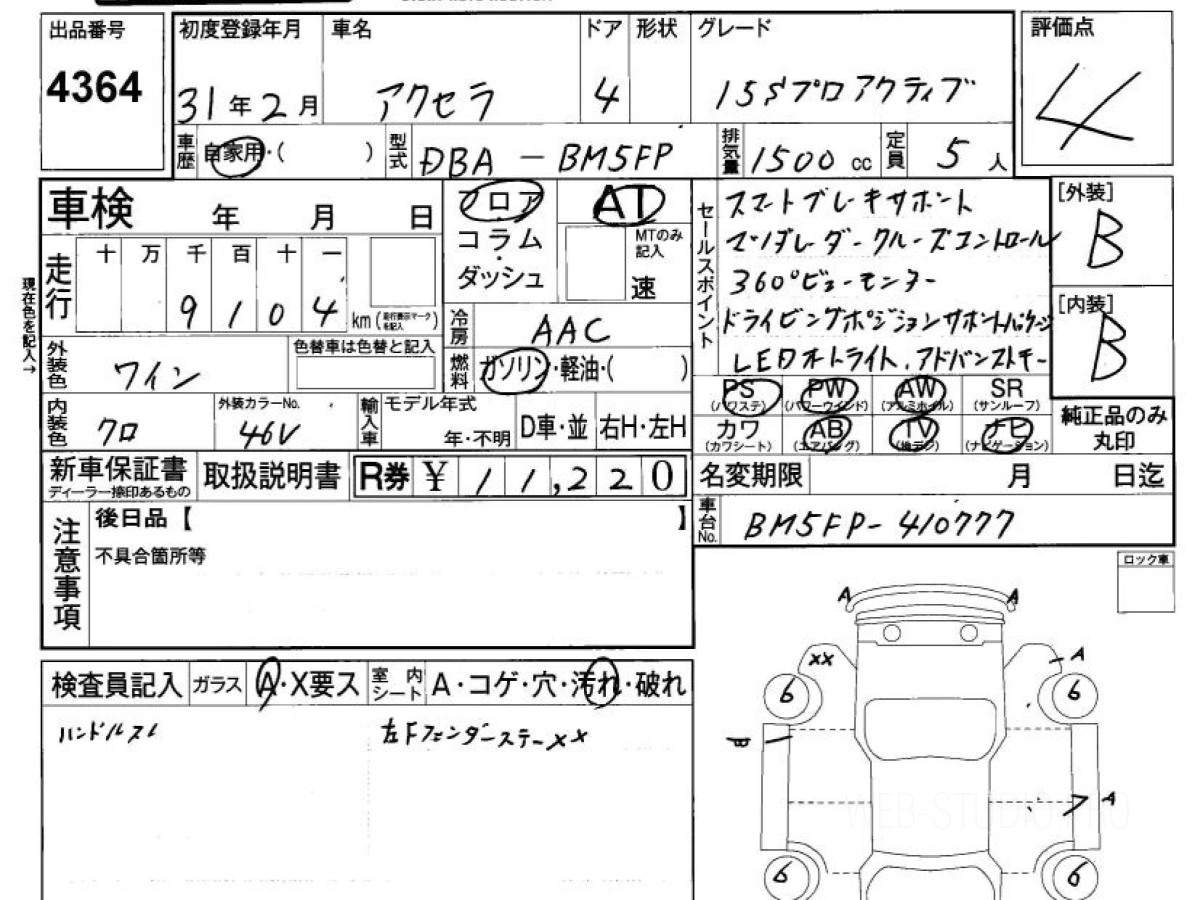 出品番号 初度登録年月 車名 ドア 形状 グレード 評価点
4364 31年2月 アクセラ 4 15Sプロアクティブ 4
車歴 自家用・( ) 型式 DBA-BM5FP 排気量 1500cc 定員 5人
車検 年 月 日 フロア AT セールスポイント スマートブレーキサポート [外装]
コラム MTのみ記入 マツダレーダークルーズコントロール B
ダッシュ 速 360°ビューモニター
現在色を記入→ 走行 十 万 千 百 十 一 [内装]
9104 km (走行表示マークを記入) 冷房 AAC ドライビングポジションサポートパッケージ B
外装色 ワイン 色替車は色替と記入 燃料 ガソリン・軽油・( ) LEDオートライト、アドバンストキー
PS (パワステ) PW (パワーウインド) AW (アルミホイル) SR (サンルーフ) 純正品のみ丸印
内装色 クロ 外装カラーNo. 46V 輸入車 モデル年式 年・不明 D車・並 右H・左H
カワ (カワシート) AB (エアバッグ) TV (地デジ) ナビ (ナビゲーション)
新車保証書 ディーラー捺印あるもの 取扱説明書 R券 ¥ 11,220 名変期限 月 日迄
注意事項 後日品【 】 車台No. BM5FP-410777
不具合箇所等
ロック車
検査員記入 ガラス A・X要ス 室内シート A・コゲ・穴・汚れ・破れ
ハンドルスレ 左Fフェンダーステー××
A A
×× A
6 6
B
A
WEB-STUDIO.PRO
6 6